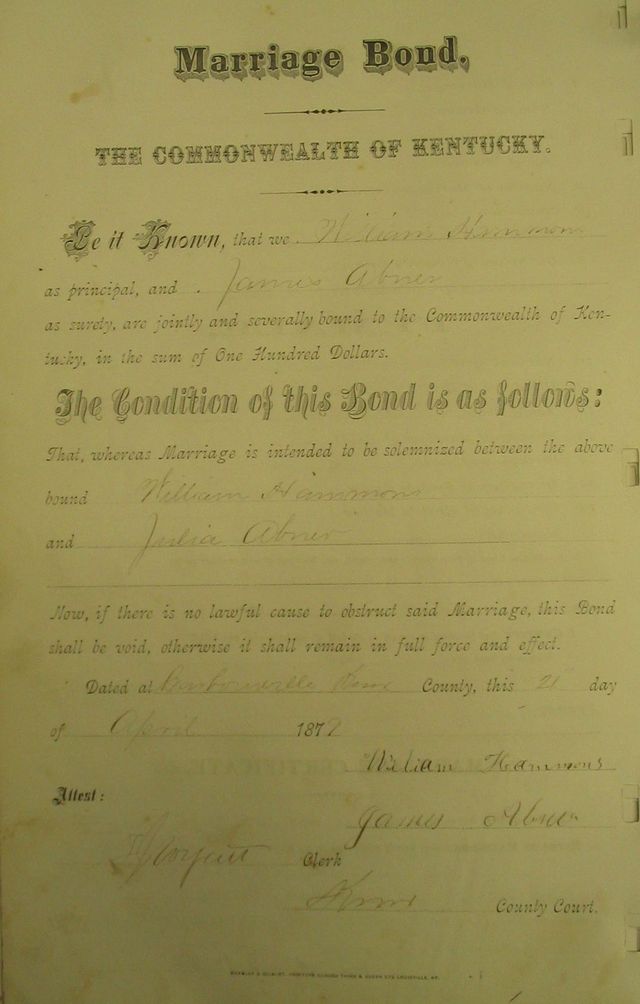 Marriage Bond,
THE COMMONWEALTH OF KENTUCKY.
Be it Known, that we William Hammons
as principal, and James Abner
as surety, are jointly and severally bound to the Commonwealth of Ken-
tucky, in the sum of One Hundred Dollars.
The Condition of this Bond is as follows:
That, whereas Marriage is intended to be solemnized between the above
bound William Hammons
and Julia Abner
Now, if there is no lawful cause to obstruct said Marriage, this Bond
shall be void, otherwise it shall remain in full force and effect.
Dated at Barbourville Knox County, this 21 day
of April 1872
William Hammons
Attest:
James Abner
Clerk
Knox County Court.